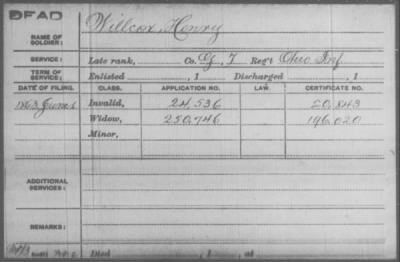 DEAD
Willcox, Henry
NAME OF SOLDIER:
SERVICE: Late rank, Co. G, 7 Reg't Ohio Inf.
TERM OF SERVICE: Enlisted , 1 Discharged , 1
DATE OF FILING. CLASS. APPLICATION NO. LAW. CERTIFICATE NO.
1863 June 6 Invalid, 24,536 20,843
Widow, 250,746 196,020
Minor,
ADDITIONAL SERVICES:
REMARKS:
Died , 1 , at